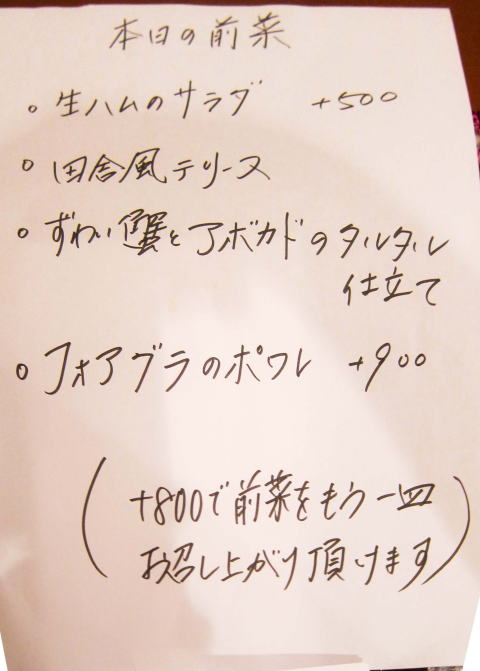 本日の前菜
○ 生ハムのサラダ +500
○ 田舎風テリーヌ
○ ずわい蟹とアボカドのタルタル
仕立て
○ フォアグラのポワレ +900
(+800で前菜をもう一皿
お召し上がり頂けます)